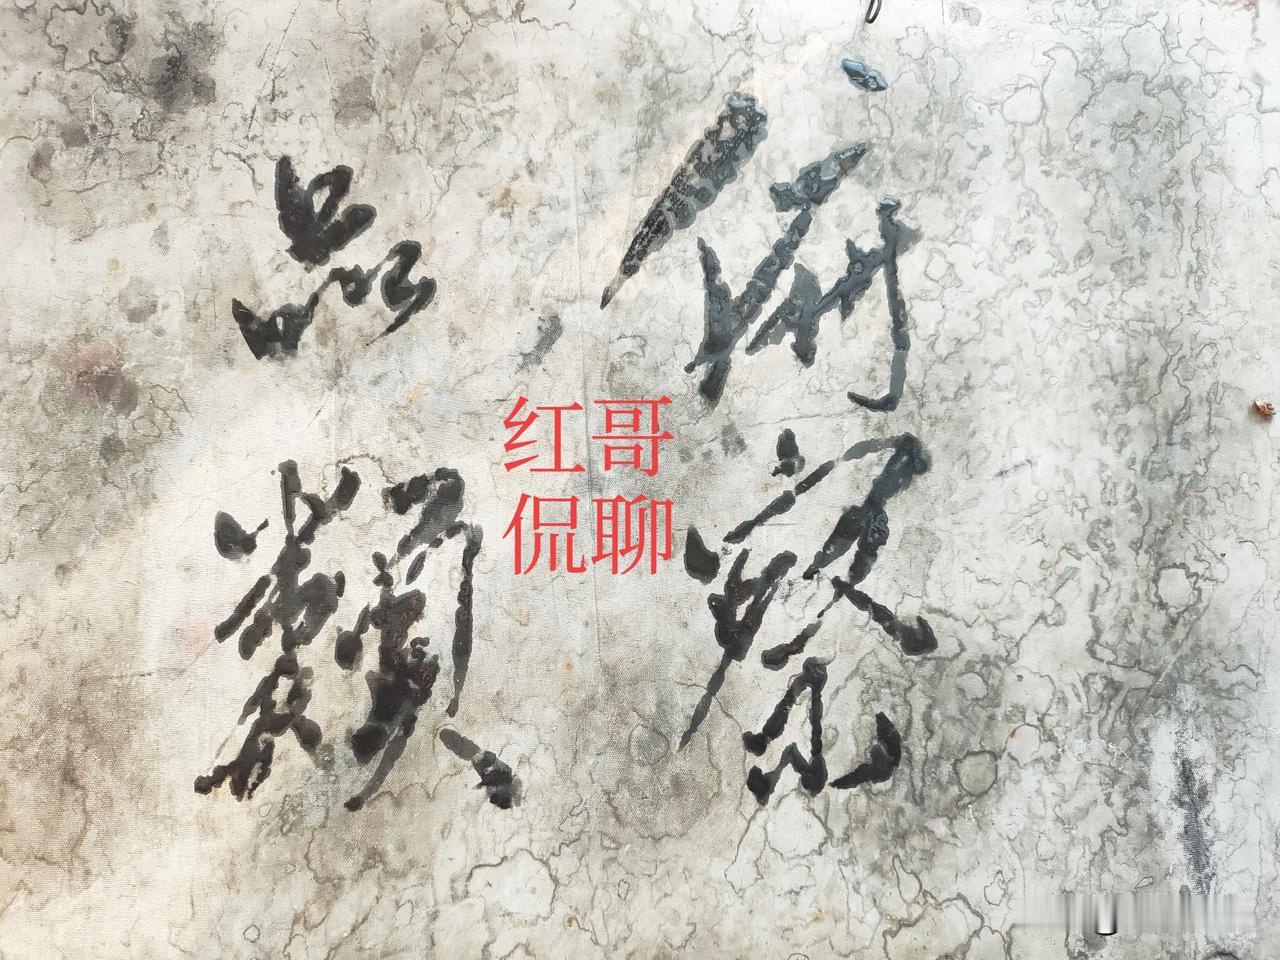 俯察
品類
红哥
侃聊